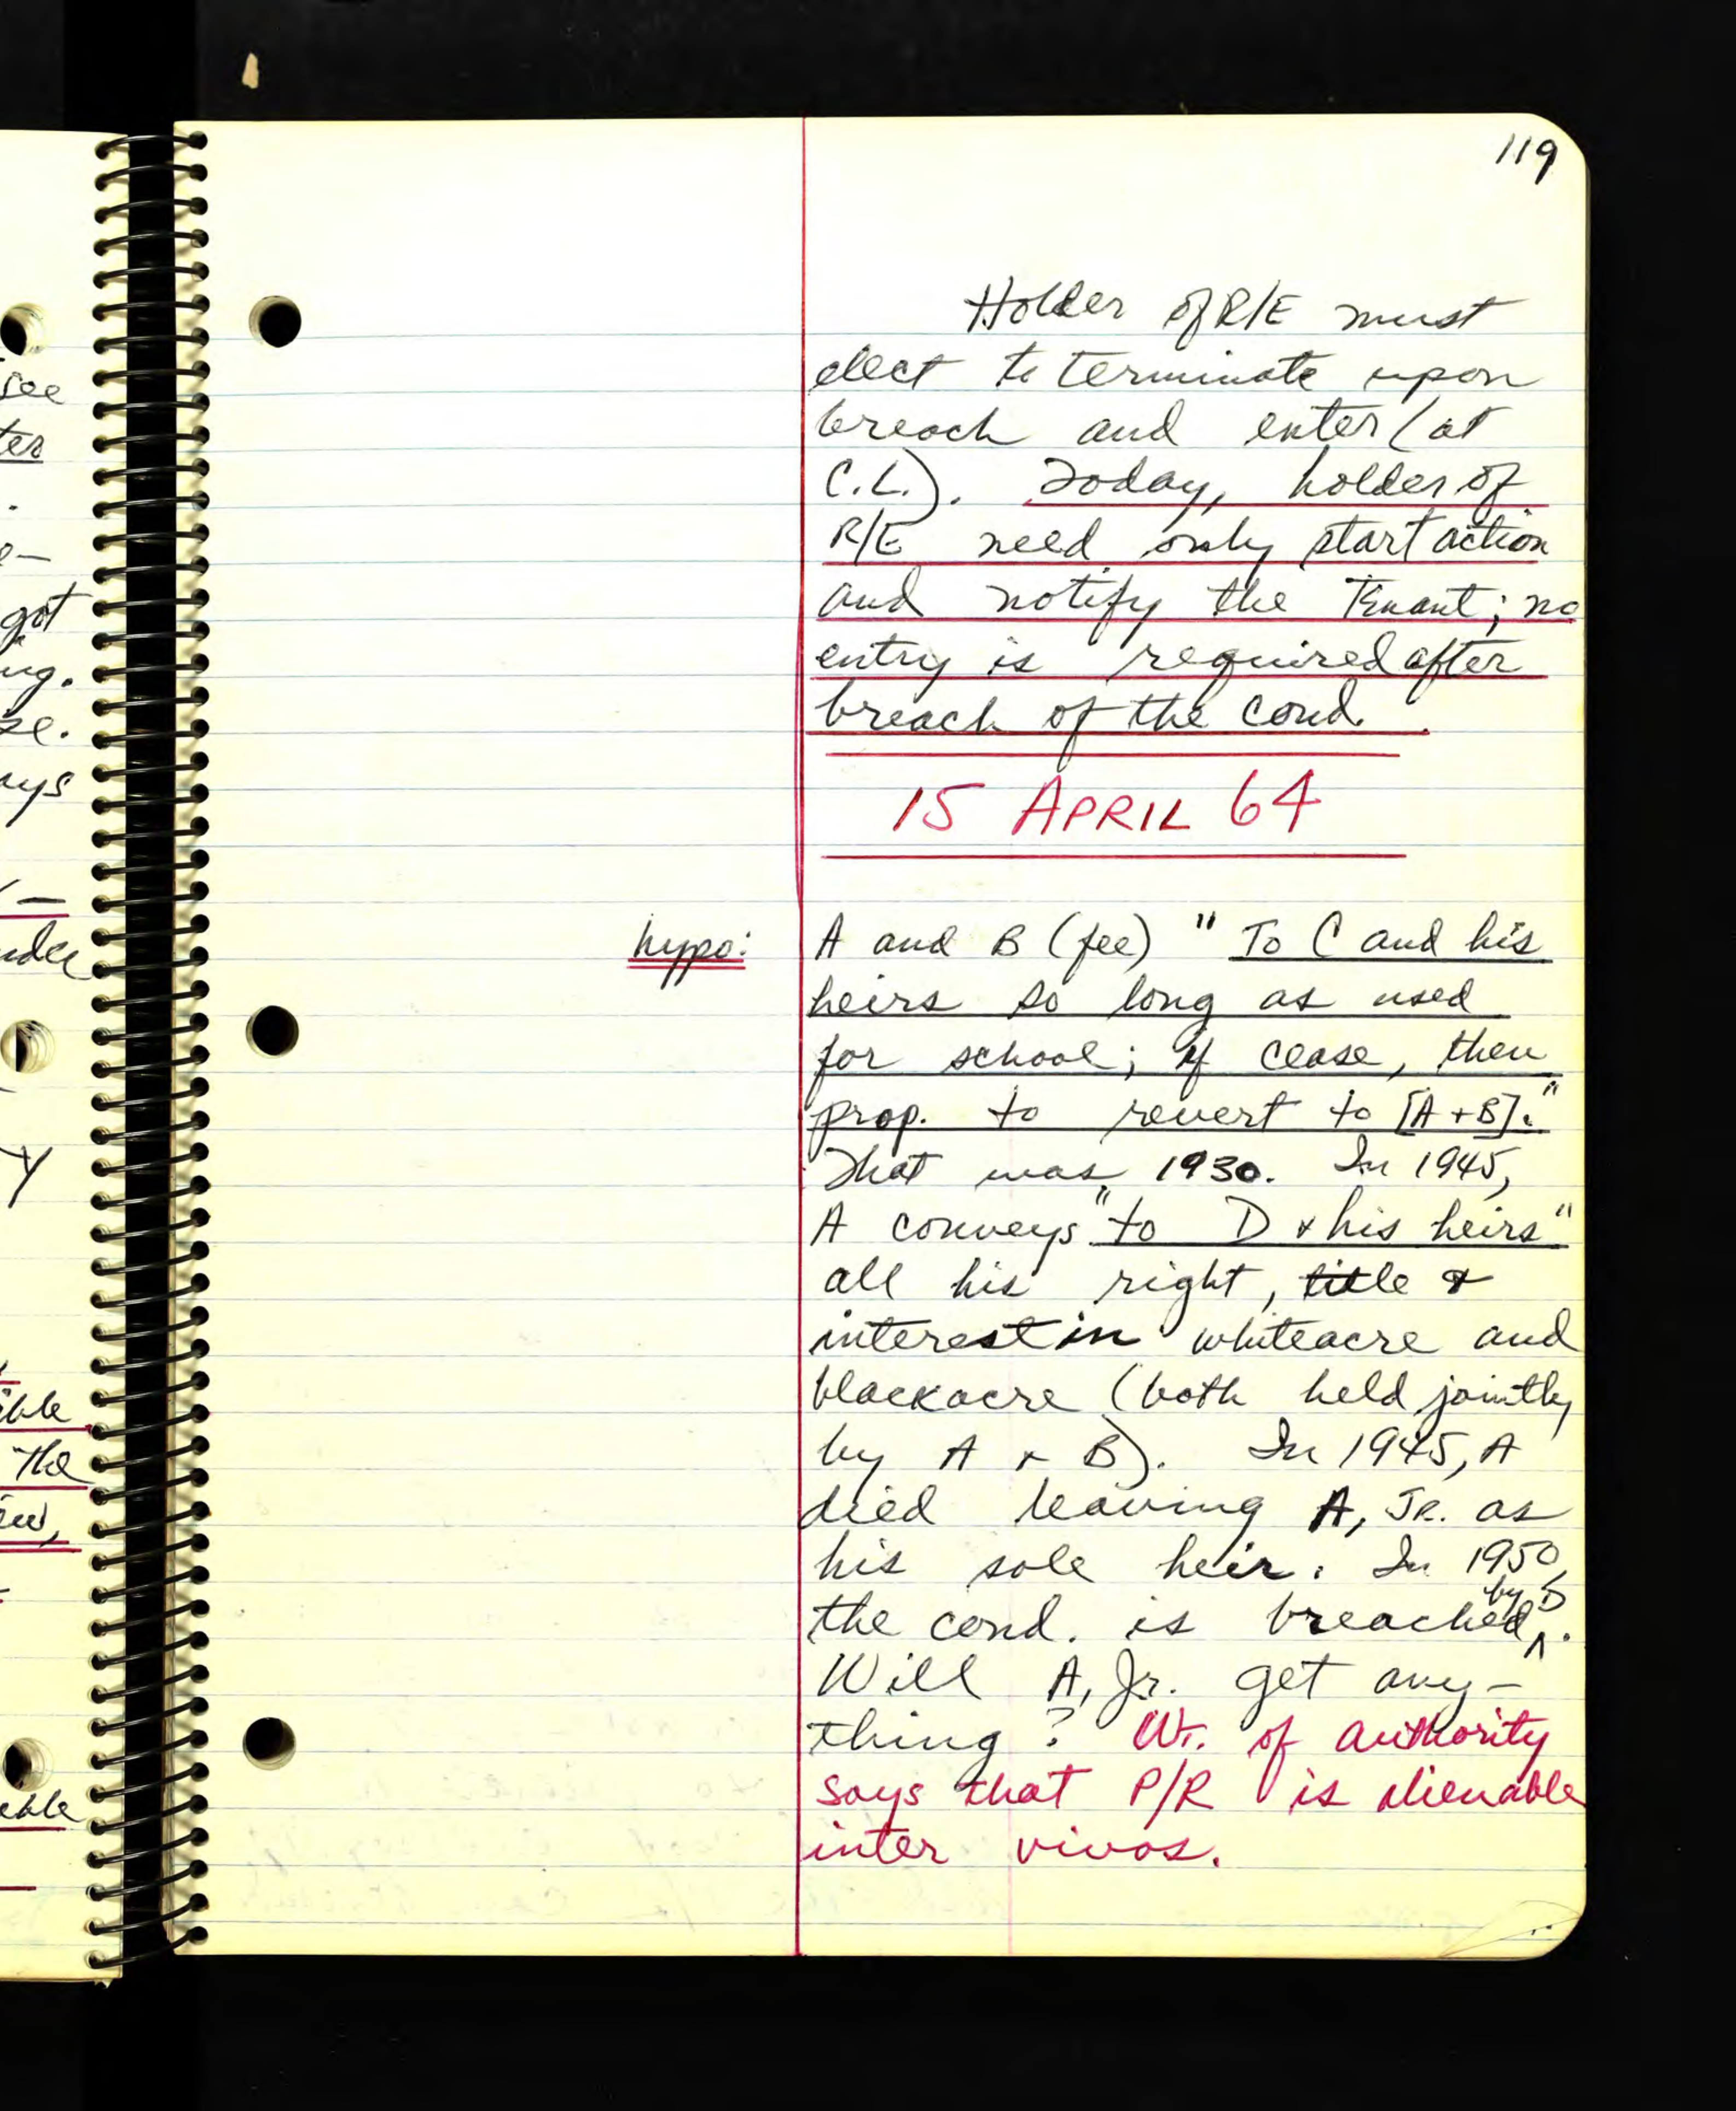 119
Holder of R/E must
elect to terminate upon
breach and enter (at
C.L.). Today, holder of
R/E need only start action
and notify the Tenant; no
entry is required after
breach of the cond.
15 APRIL 64
hypo:
A and B (fee) "To C and his
heirs so long as used
for school; if cease, then
prop. to revert to [A + B]."
That was 1930. In 1945,
A conveys "to D + his heirs"
all his right, title &
interest in whiteacre and
blackacre (both held jointly
by A + B). In 1945, A
died leaving A, JR. as
his sole heir. In 1950,
the cond. is breached by D.
Will A, Jr. get any-
thing? Wt. of authority
says that P/R is alienable
inter vivos.
see
ter
.
e-
got
ng.
se.
ays
-
nder
y
ible
The
ew,
able